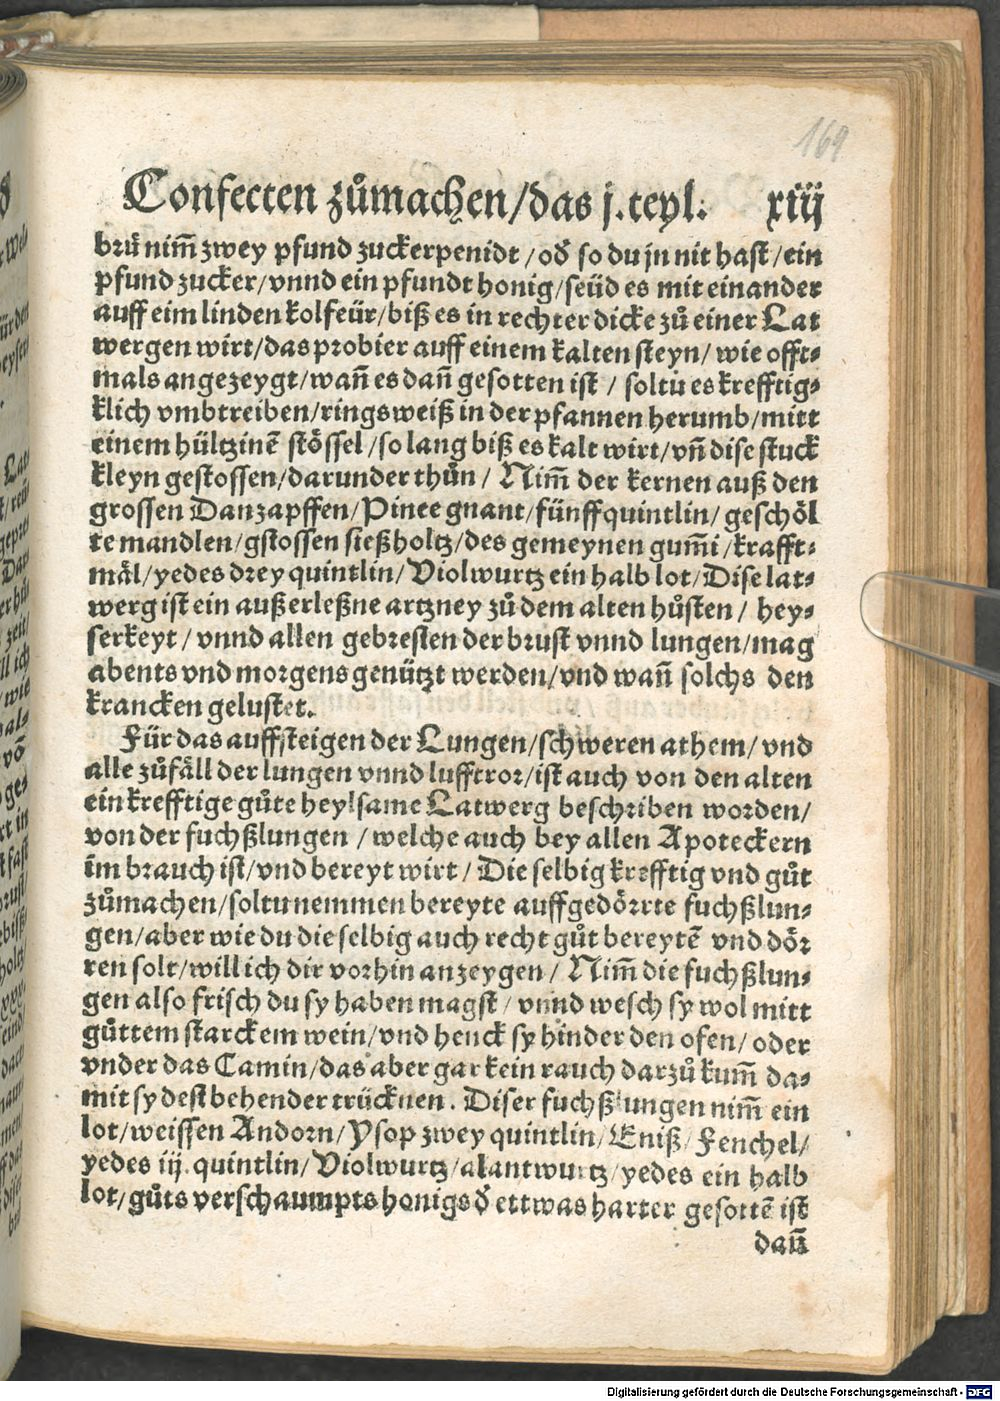 169
Confecten zůmachen/das j. teyl. xiij
brü nim̃ zwey pfund zuckerpenidt/od̃ so du jn nit hast/ein
pfund zucker/vnnd ein pfundt honig/seüd es mit einander
auff eim linden kolfeür/biß es in rechter dicke zů einer Lat
wergen wirt/das probier auff einem kalten steyn/wie offt⸗
mals angezeygt/wañ es dañ gesotten ist/soltu es krefftig⸗
klich vmbtreiben/ringsweiß in der pfannen herumb/mitt
einem hültzinẽ stössel/so lang biß es kalt wirt/vñ dise stuck
kleyn gestossen/darunder thůn/Nim̃ der kernen auß den
grossen Danzapffen/Pinee gnant/fünff quintlin/geschöl
te mandlen/gstossen sießholtz/des gemeynen gum̃i/krafft⸗
mäl/yedes drey quintlin/Violwurtz ein halb lot/Dise lat⸗
werg ist ein außerleßne artzney zů dem alten hůsten/hey⸗
serkeyt/vnnd allen gebresten der brust vnnd lungen/mag
abents vnd morgens genützt werden/vnd wañ solchs den
krancken gelustet.
Für das auffsteigen der Lungen/schweren athem/vnd
alle zůfäll der lungen vnnd lufftror/ist auch von den alten
ein krefftige gůte heylsame Latwerg beschriben worden/
von der fuchßlungen/welche auch bey allen Apoteckern
im brauch ist/vnd bereyt wirt/Die selbig krefftig vnd gůt
zůmachen/soltu nemmen bereyte auffgedörrte fuchßlun⸗
gen/aber wie du die selbig auch recht gůt bereytẽ vnd dör
ren solt/will ich dir vorhin anzeygen/Nim̃ die fuchßlun⸗
gen also frisch du sy haben magst/vnnd wesch sy wol mitt
gůttem starckem wein/vnd henck sy hinder den ofen/oder
vnder das Camin/das aber gar kein rauch darzů kum̃ da⸗
mit sy dest behender trücknen. Diser fuchßlungen nim̃ ein
lot/weissen Andorn/Ysop zwey quintlin/Eniß/Fenchel/
yedes iij. quintlin/Violwurtz/alantwurtz/yedes ein halb
lot/gůts verschaumpts honigs d̃ ettwas harter gesottẽ ist
dañ
Digitalisierung gefördert durch die Deutsche Forschungsgemeinschaft - DFG